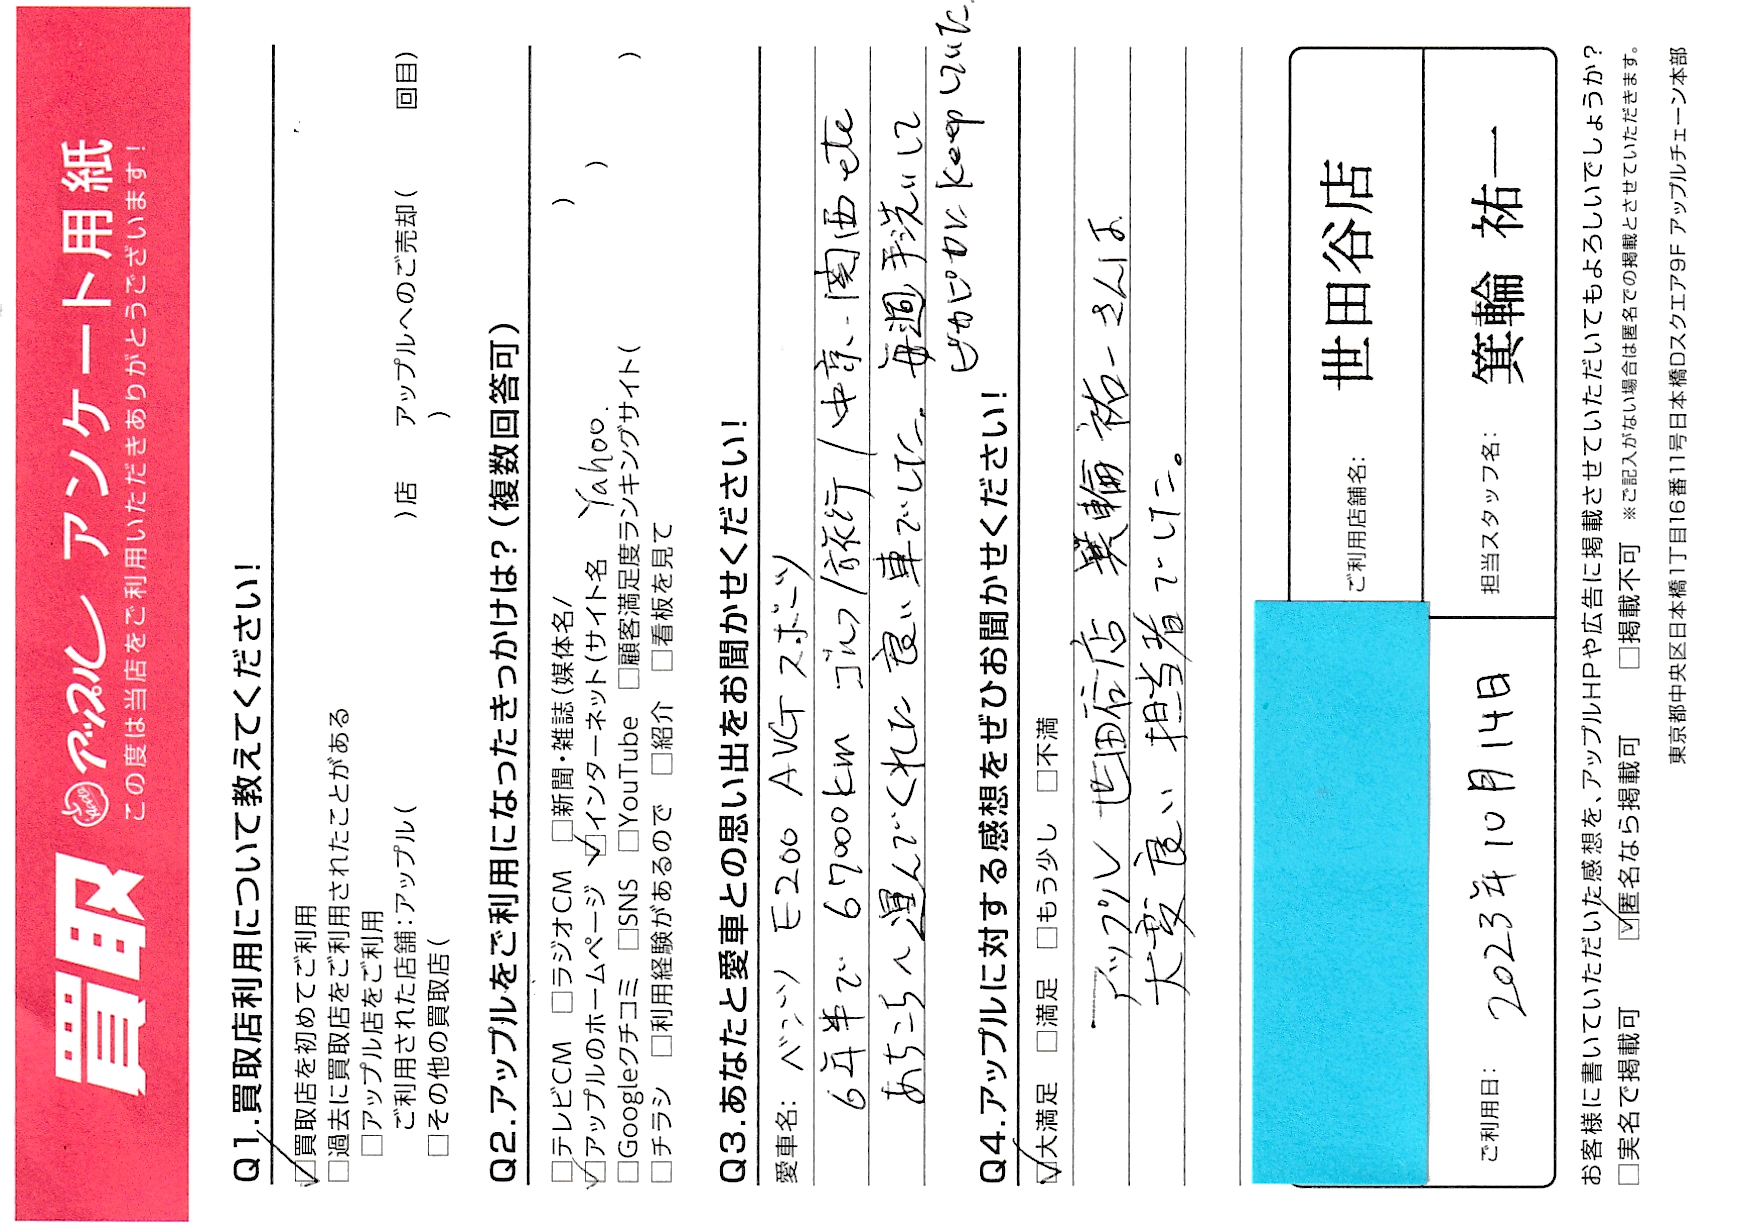 買取 アップル アンケート用紙
この度は当店をご利用いただきありがとうございます!
Q1.買取店利用について教えてください!
☑買取店を初めてご利用
□過去に買取店をご利用されたことがある
□アップル店をご利用
ご利用された店舗:アップル( )店 アップルへのご売却( 回目)
□その他の買取店( )
Q2.アップルをご利用になったきっかけは?(複数回答可)
□テレビCM □ラジオCM □新聞・雑誌(媒体名/ )
☑アップルのホームページ ☑インターネット(サイト名 Yahoo. )
□Googleクチコミ □SNS □YouTube □顧客満足度ランキングサイト( )
□チラシ □利用経験があるので □紹介 □看板を見て
Q3.あなたと愛車との思い出をお聞かせください!
愛車名: ベンツ E200 AVGスポーツ
6年半で 67000km ゴルフ/旅行/中京、関西 etc
あちこちへ運んでくれた良い車でした。毎週手洗いして
ぴかぴかにkeepしていた。
Q4.アップルに対する感想をぜひお聞かせください!
☑大満足 □満足 □もう少し □不満
アップル 世田谷店 箕輪 祐一さんは
大変良い担当者でした。
ご利用店舗名: 世田谷店
ご利用日: 2023年10月14日
担当スタッフ名: 箕輪 祐一
お客様に書いていただいた感想を、アップルHPや広告に掲載させていただいてもよろしいでしょうか?
□実名で掲載可 ☑匿名なら掲載可 □掲載不可 ※ご記入がない場合は匿名での掲載とさせていただきます。
東京都中央区日本橋1丁目16番11号日本橋Dスクエア9F アップルチェーン本部